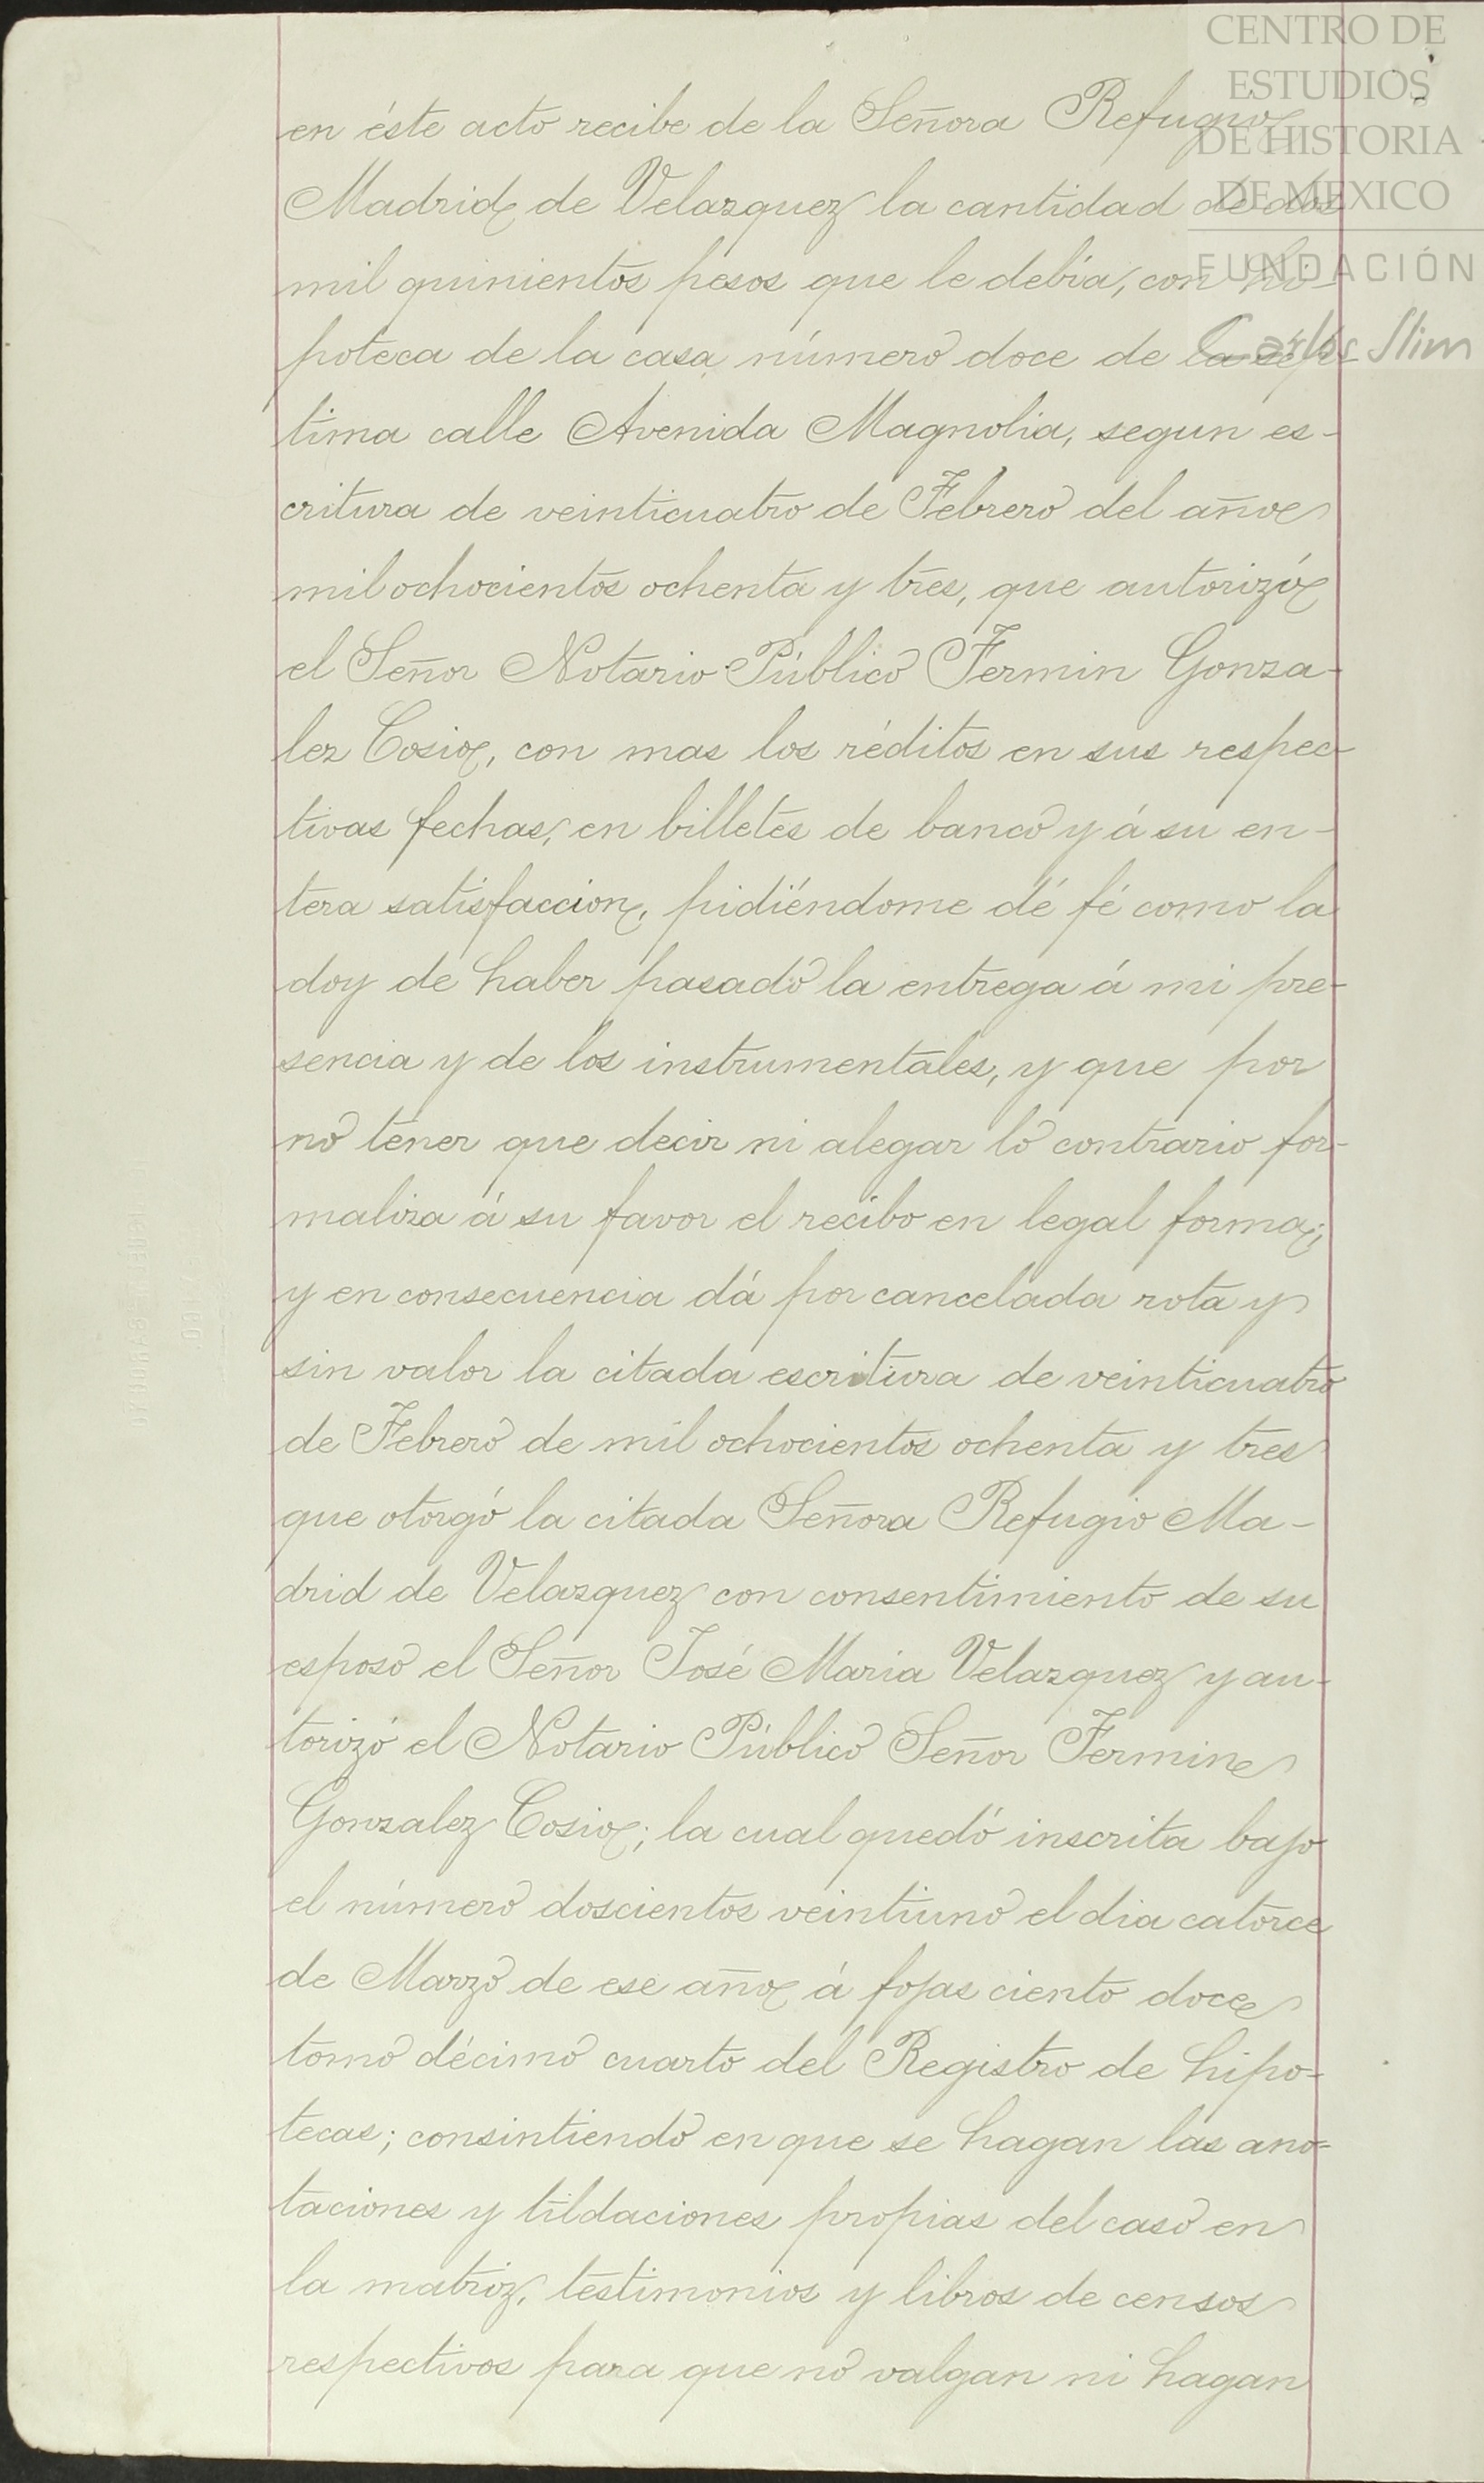 CENTRO DE
ESTUDIOS
DE HISTORIA
DE MEXICO
FUNDACIÓN
Carlos Slim
en éste acto recibe de la Señora Refugio
Madrid de Velazquez la cantidad de dos
mil quinientos pesos que le debía, con hi-
poteca de la casa número doce de la sép-
tima calle Avenida Magnolia, segun es-
critura de veinticuatro de Febrero del año
mil ochocientos ochenta y tres, que autorizó
el Señor Notario Público Fermin Gonza-
lez Cosio, con mas los réditos en sus respec-
tivas fechas, en billetes de banco y á su en-
tera satisfaccion, pidiéndome dé fé como la
doy de haber pasado la entrega á mi pre-
sencia y de los instrumentales, y que por
no tener que decir ni alegar lo contrario for-
maliza á su favor el recibo en legal forma;
y en consecuencia dá por cancelada rota y
sin valor la citada escritura de veinticuatro
de Febrero de mil ochocientos ochenta y tres
que otorgó la citada Señora Refugio Ma-
drid de Velazquez con consentimiento de su
esposo el Señor José Maria Velazquez y au-
torizó el Notario Público Señor Fermin
Gonzalez Cosio; la cual quedó inscrita bajo
el número doscientos veintiuno el dia catorce
de Marzo de ese año á fojas ciento doce
tomo décimo cuarto del Registro de hipo-
tecas; consintiendo en que se hagan las ano-
taciones y tildaciones propias del caso en
la matriz, testimonios y libros de censos
respectivos para que no valgan ni hagan